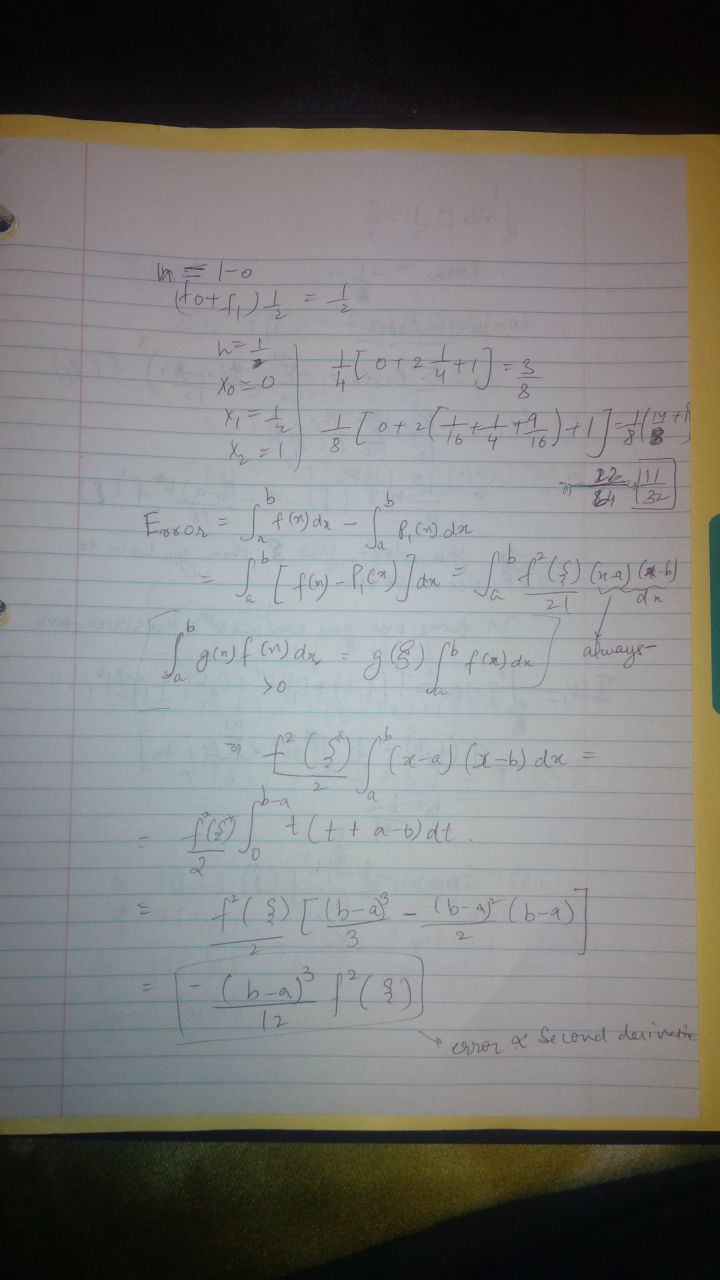 h = 1-0
(f0+f₁) 1/2 = 1/2
h = 1/2
x₀ = 0
x₁ = 1/2
x₂ = 1
1/4 [0 + 2 1/4 + 1] = 3/8
1/8 [0 + 2(1/16 + 1/4 + 9/16) + 1] = 1/8 (14/8 + 1)
22/64 11/32
Error = ∫ₐᵇ f(x) dx − ∫ₐᵇ P₁(x) dx
= ∫ₐᵇ [f(x) − P₁(x)] dx = ∫ₐᵇ f²(ξ)/2! (x-a) (x-b) dx
always
∫ₐᵇ g(x) f(x) dx = g(ξ) ∫ₐᵇ f(x) dx
>0
⇒ f²(ξ)/2 ∫ₐᵇ (x-a) (x-b) dx =
= f²(ξ)/2 ∫₀ᵇ⁻ᵃ t(t + a-b) dt.
= f²(ξ)/2 [(b-a)³/3 − (b-a)²/2 (b-a)]
= − (b-a)³/12 f²(ξ)
error ∝ Second derivative